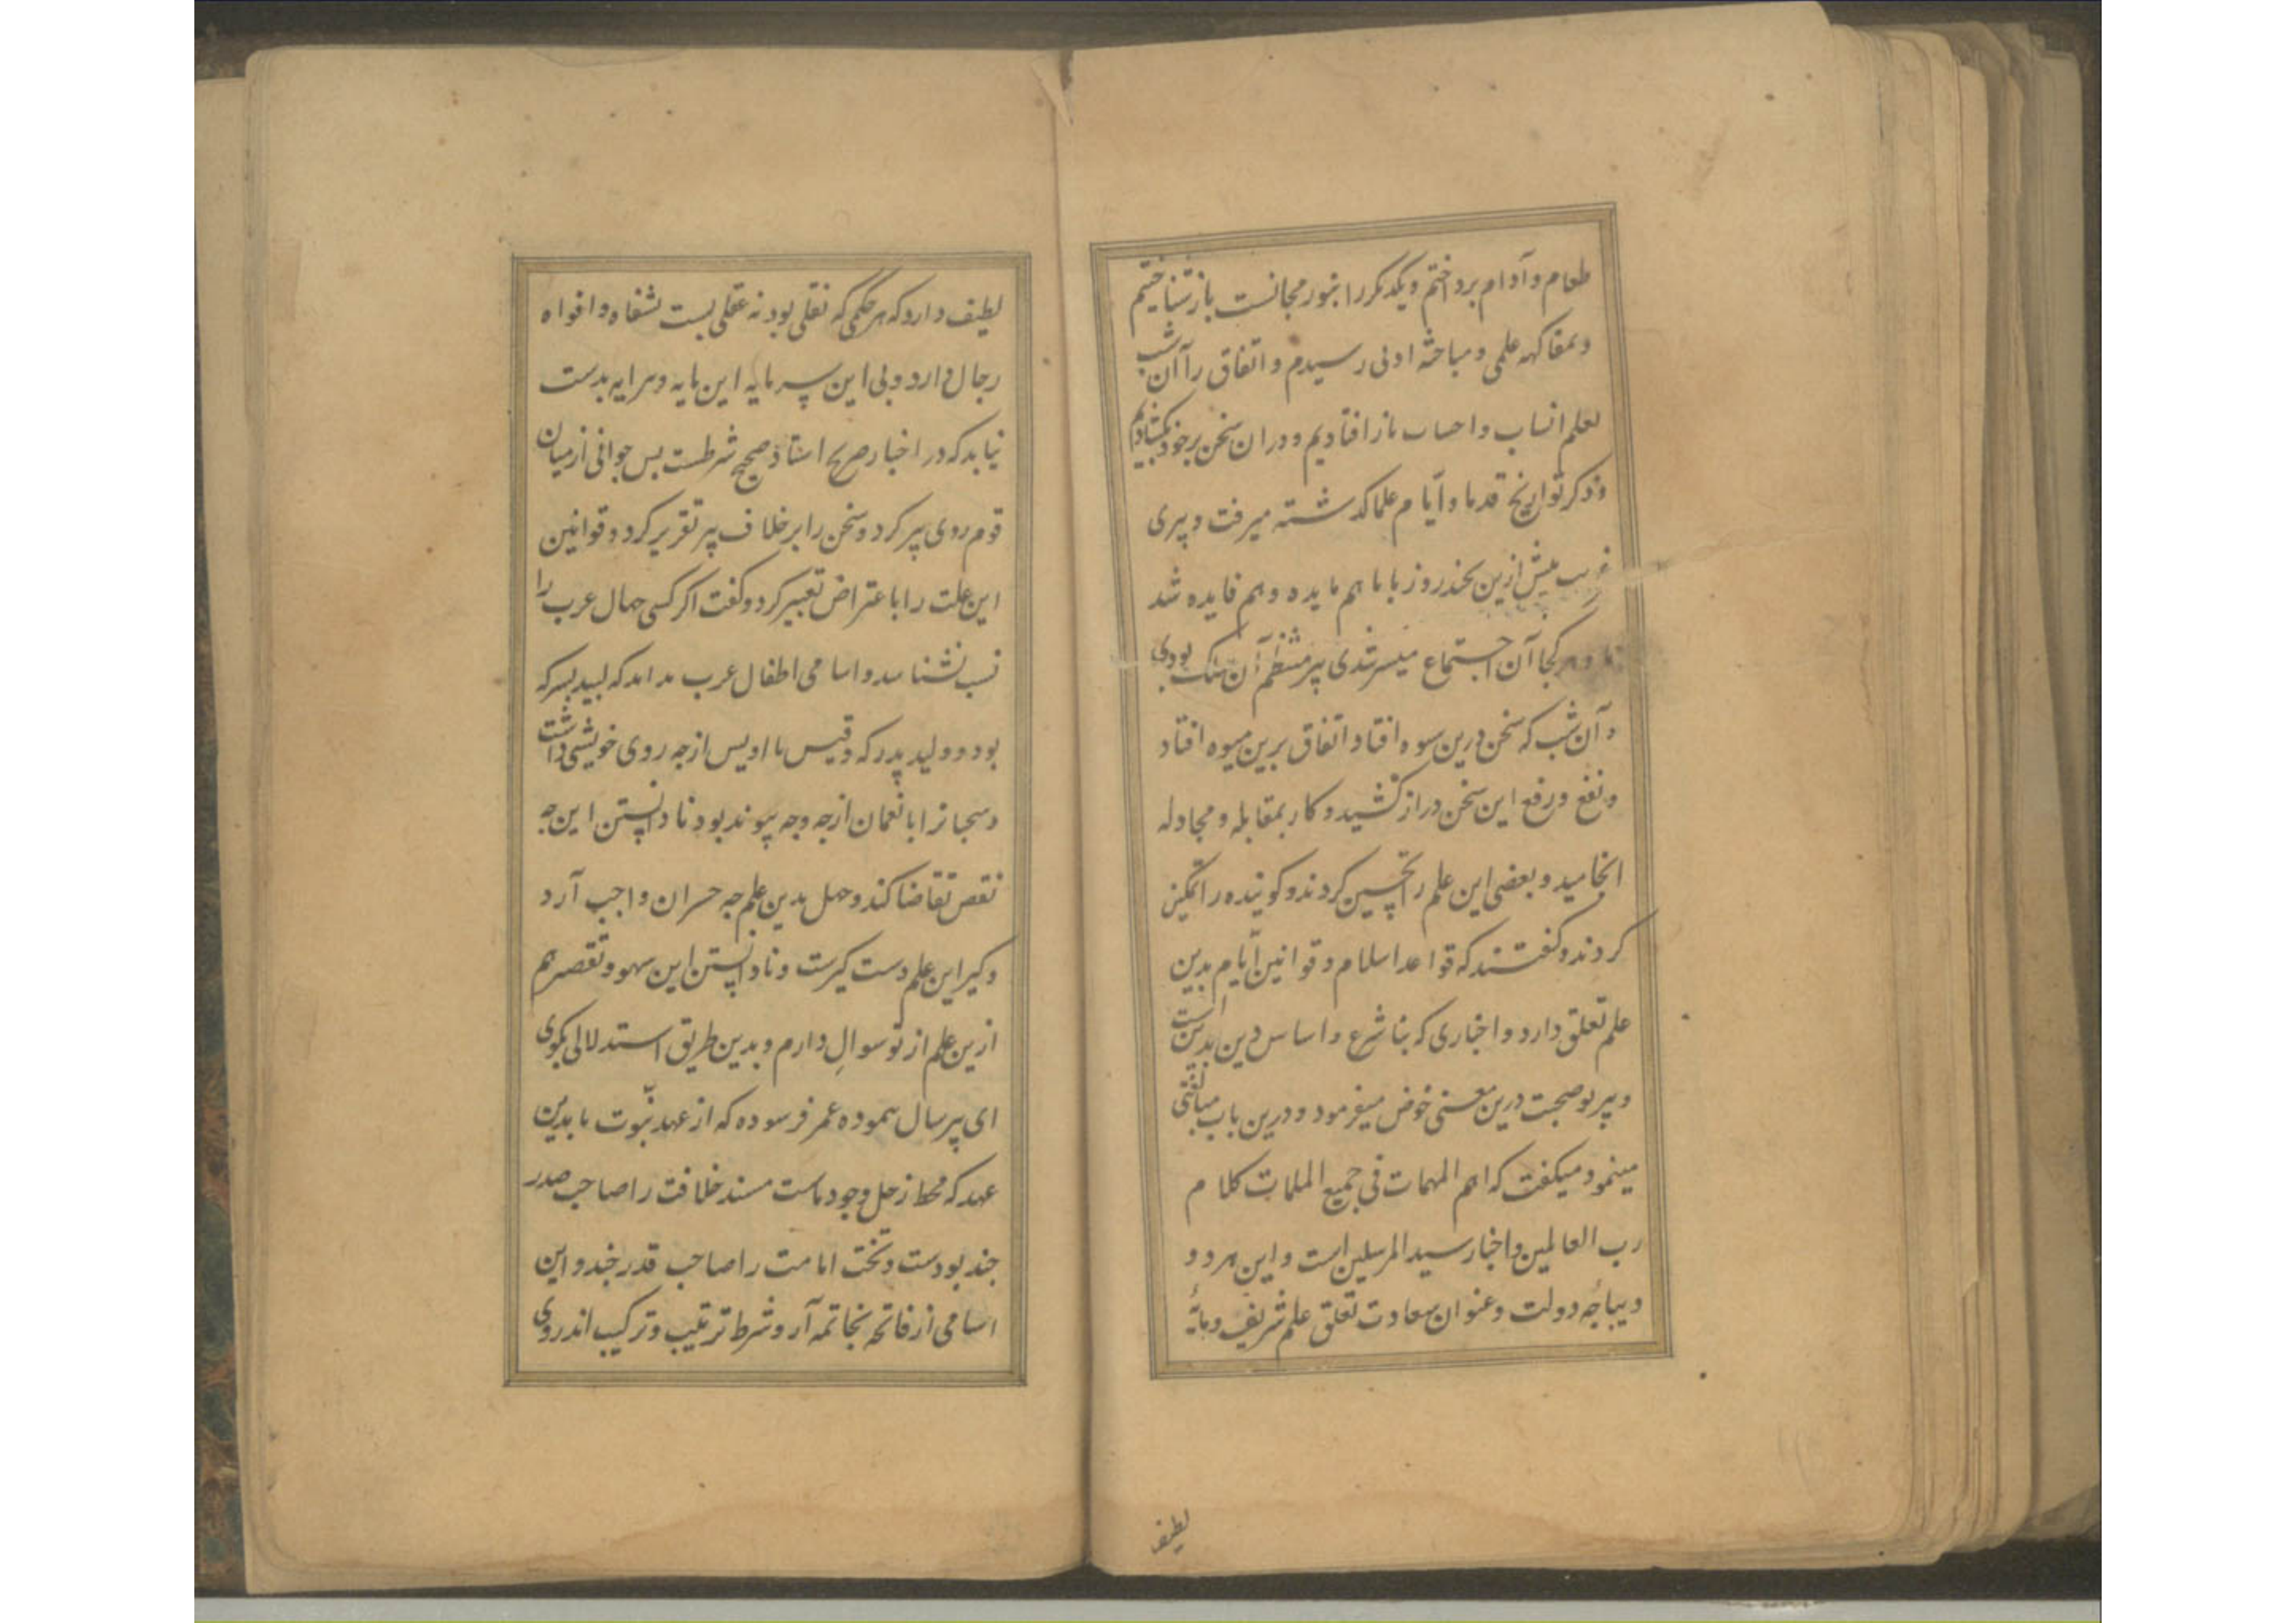 طعام و آوام برداختم و یکدیکر را بنور مجانست باز شناختیم
و بمفاکهه علمی و مباحثه ادبی رسیدم و اتفاق را آن شب
بعلم انساب و احساب باز افتادیم و دران سخن برخود بکشادیم
و ذکر تواریخ قدما و ایّام علما کدشته میرفت و پیری
غریب پیش ازین بچند روز با ما هم مایده و هم فایده شد
و هر کجا آن اجتماع میسر شدی پیر منتظم آن سلک بودی
و آن شب که سخن درین سوه افتاد اتفاق برین میوه افتاد
و نفع و رفع این سخن دراز کشید و کار بمقابله و مجادله
انجامید و بعضی این علم را تحسین کردند و کوینده را تمکین
کردند و کفتند که قواعد اسلام و قوانین ایّام بدین
علم تعلق دارد و اخباری که بنا شرع و اساس دین بدین است
و پیر بوصحبت درین معنی خوض میفرمود و درین باب مبالغتی
مینمود و میکفت که اهم المهمات فی جمیع الملمات کلام
رب العالمین و اخبار سید المرسلین است و این هر دو
دیباجه دولت و عنوان سعادت تعلق علم شریف و مایهٔ
لطیف
لطیف دارد که هر حکمی که نقلی بود نه عقلی بست بشفاه و افواه
رجال دارد و بی این سرمایه این مایه و سرایه بدست
نیاید که در اخبار صریح اسناد صحیح شرطست بس جوانی از میان
قوم روی بپیر کرد و سخن را بر خلاف پیر تقریر کرد و قوانین
این علت را با عتراض تعبیر کرد و کفت اکر کسی جمال عرب را
نسب نشناسد و اسامی اطفال عرب نداند که لبید پسر که
بود و ولید پدر که و قیس با اویس از جه روی خویشی داشت
و سحبانرا با نعمان از جه وجه پیوند بود نادانستن این جه
نقص تقاضا کند و جهل بدین علم جه خسران واجب آرد
و کیر این علم دست کیرست و نادانستن این سهو و تقصیر هم
ازین علم از تو سوال دارم و بدین طریق استدلالی بکوی
ای پیر سال پیموده عمر فرسوده که از عهد نبّوت تا بدین
عهد که محط رحل وجود ماست مسند خلافت را صاحب صدر
جند بودست و تخت امامت را صاحب قدر جند و این
اسامی از فاتحه بخاتمه آر و شرط ترتیب و ترکیب اندروی